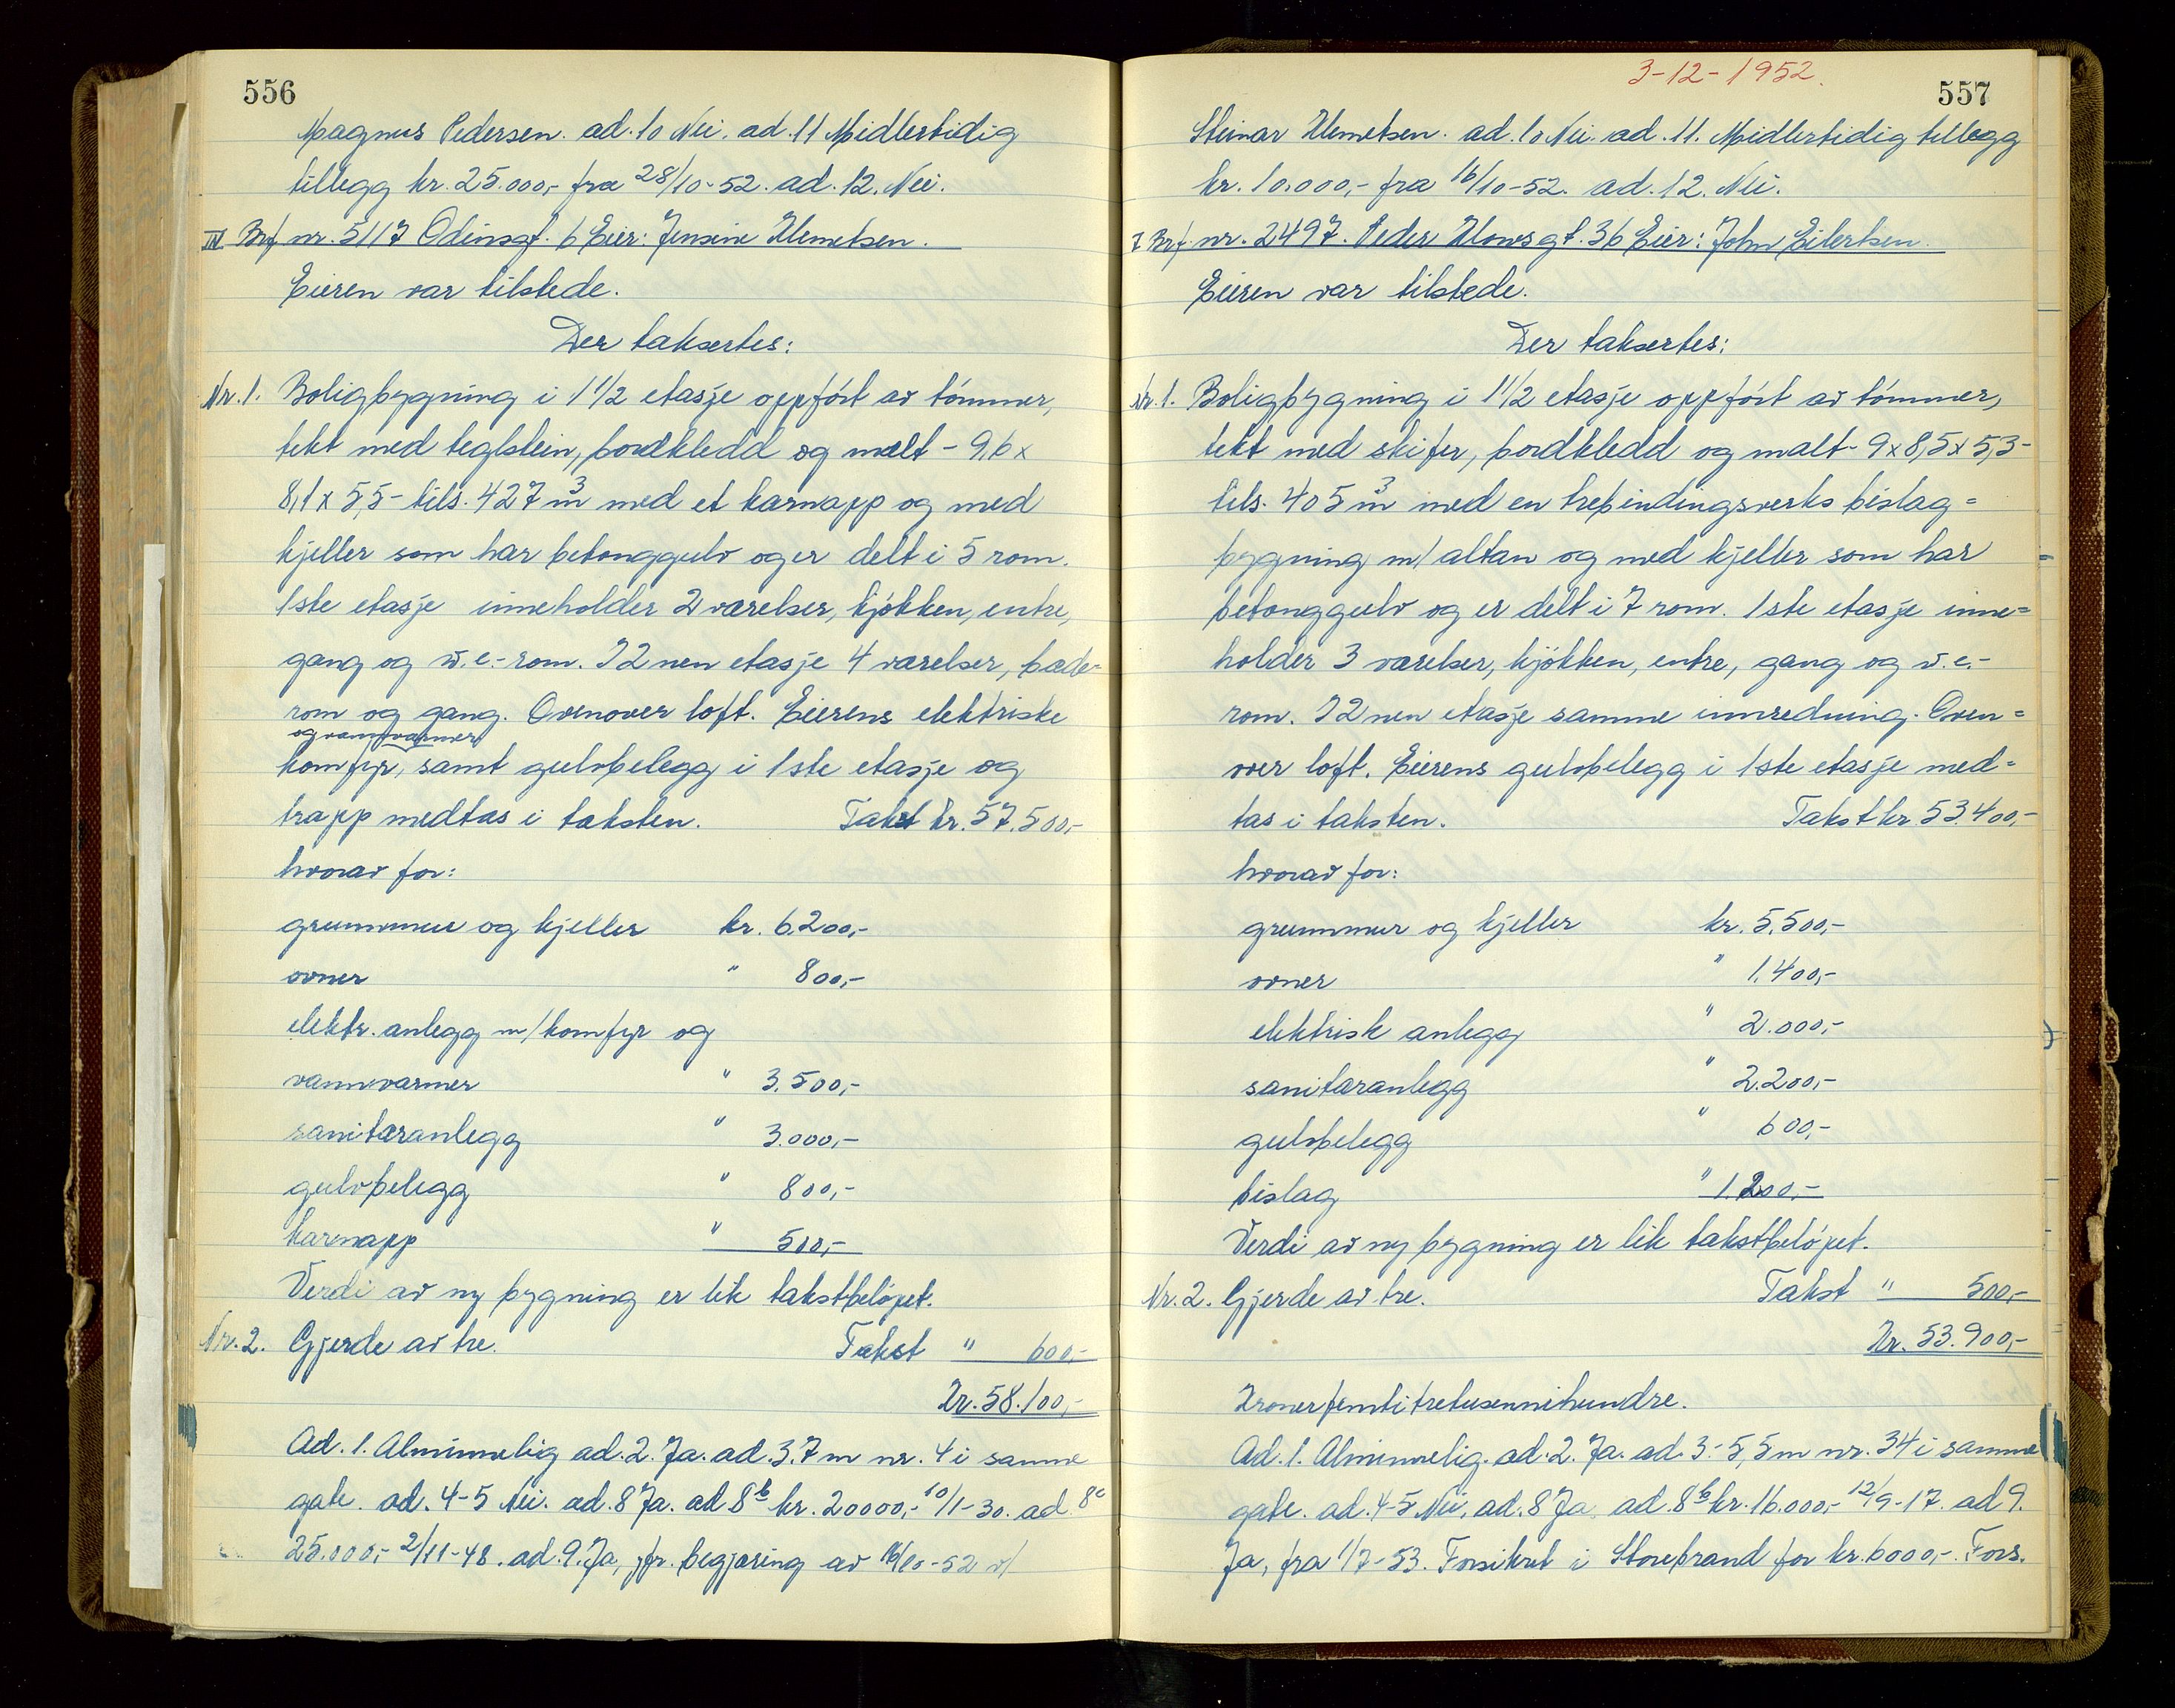 556
Magnus Pedersen. ad. 10 Nei. ad. 11 Midlertidig
tillegg kr. 25.000,- fra 28/10-52. ad. 12. Nei.
IV Brf nr. 5117 Odinsgt. 6 Eier: Jensine Klemetsen.
Eieren var tilstede.
Der taksertes:
Nr. 1. Boligbygning i 1 1/2 etasje oppført av tømmer,
tekt med teglstein, bordkledd og malt - 9,6 x
8,1 x 5,5 - tils. 427 m³ med et karnapp og med
kjeller som har betonggulv og er delt i 5 rom.
1ste etasje inneholder 2 værelser, kjøkken, entre,
gang og w.c.-rom. I 2nen etasje 4 værelser, bade-
rom og gang. Ovenover loft. Eierens elektriske
og vannvarmer
komfyr, samt gulvbelegg i 1ste etasje og
trapp medtas i taksten. Takst kr. 57.500,-
hvorav for:
grunnmur og kjeller kr. 6.200,-
ovner " 800,-
elektr. anlegg m/komfyr og
vannvarmer " 3.500,-
sanitæranlegg " 3.000,-
gulvbelegg " 800,-
karnapp " 500,-
Verdi av ny bygning er lik takstbeløpet.
Nr. 2. Gjerde av tre. Takst " 600,-
Kr. 58.100,-
Ad. 1. Alminnelig ad. 2. Ja. ad. 3. 7 m nr. 4 i samme
gate. ad. 4-5 Nei. ad. 8 Ja. ad 8b kr. 20000,- 10/1-30. ad. 8c
25.000,- 2/11-48. ad. 9. Ja, jfr. begjæring av 16/10-52 v/
3-12-1952.
557
Steinar Klemetsen. ad. 10 Nei. ad. 11. Midlertidig tillegg
kr. 10.000,- fra 16/10-52. ad. 12. Nei.
I Brf nr. 2497. Peder Klowsgt. 36 Eier: John Eilertsen.
Eieren var tilstede.
Der taksertes:
Nr. 1. Boligbygning i 1 1/2 etasje oppført av tømmer,
tekt med skifer, bordkledd og malt - 9 x 8,5 x 5,3 -
tils. 405 m³ med en trebindingsverks bislag=
bygning m/ altan og med kjeller som har
betonggulv og er delt i 7 rom. 1ste etasje inne=
holder 3 værelser, kjøkken, entre, gang og w.c.-
rom. I 2nen etasje samme innredning. Oven=
over loft. Eierens gulvbelegg i 1ste etasje med=
tas i taksten. Takst kr. 53.400,-
hvorav for:
grunnmur og kjeller kr. 5.500,-
ovner " 1.400,-
elektrisk anlegg " 2.000,-
sanitæranlegg " 2.200,-
gulvbelegg " 600,-
bislag " 1.200,-
Verdi av ny bygning er lik takstbeløpet.
Nr. 2. Gjerde av tre. Takst " 500,-
Kr. 53.900,-
Kronerfemtitretusennihundre.
Ad. 1. Alminnelig. ad. 2. Ja. ad. 3. - 5,5 m nr. 34 i samme
gate. ad. 4-5 Nei, ad. 8 Ja ad. 8b kr. 16.000,- 12/9-17. ad 9.
Ja, fra 1/7-53. Forsikret i Storebrand for kr. 6000,-. Fors.